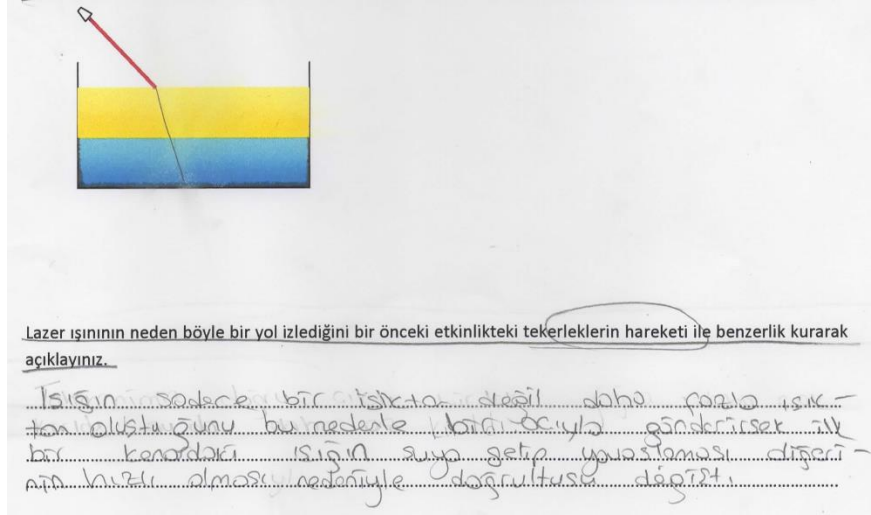 Lazer ışınının neden böyle bir yol izlediğini bir önceki etkinlikteki tekerleklerin hareketi ile benzerlik kurarak
açıklayınız.
Işığın sadece bir ışıktan değil daha fazla ışık-
tan oluştuğunu bu nedenle bir açıyla gönderirsek ilk
bir kenardaki ışığın suya gelip yavaşlaması diğeri-
nin hızlı olması nedeniyle doğrultusu değişti.